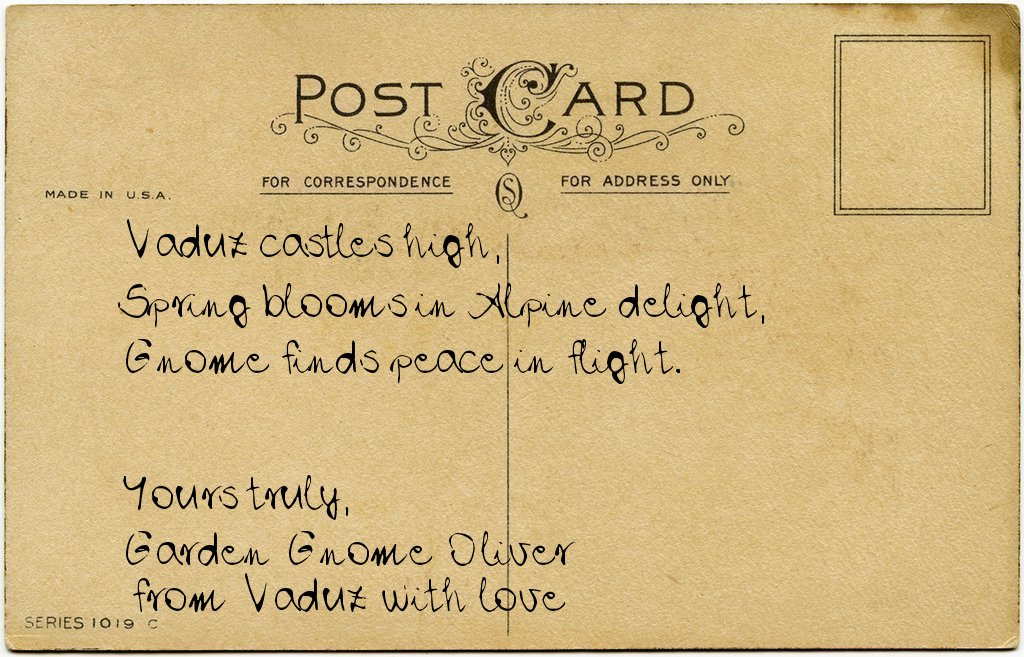 POST CARD
FOR CORRESPONDENCE
FOR ADDRESS ONLY
MADE IN U.S.A.
Vaduz castles high,
Spring blooms in Alpine delight,
Gnome finds peace in flight.
Yours truly,
Garden Gnome Oliver
from Vaduz with love
SERIES 1019 C